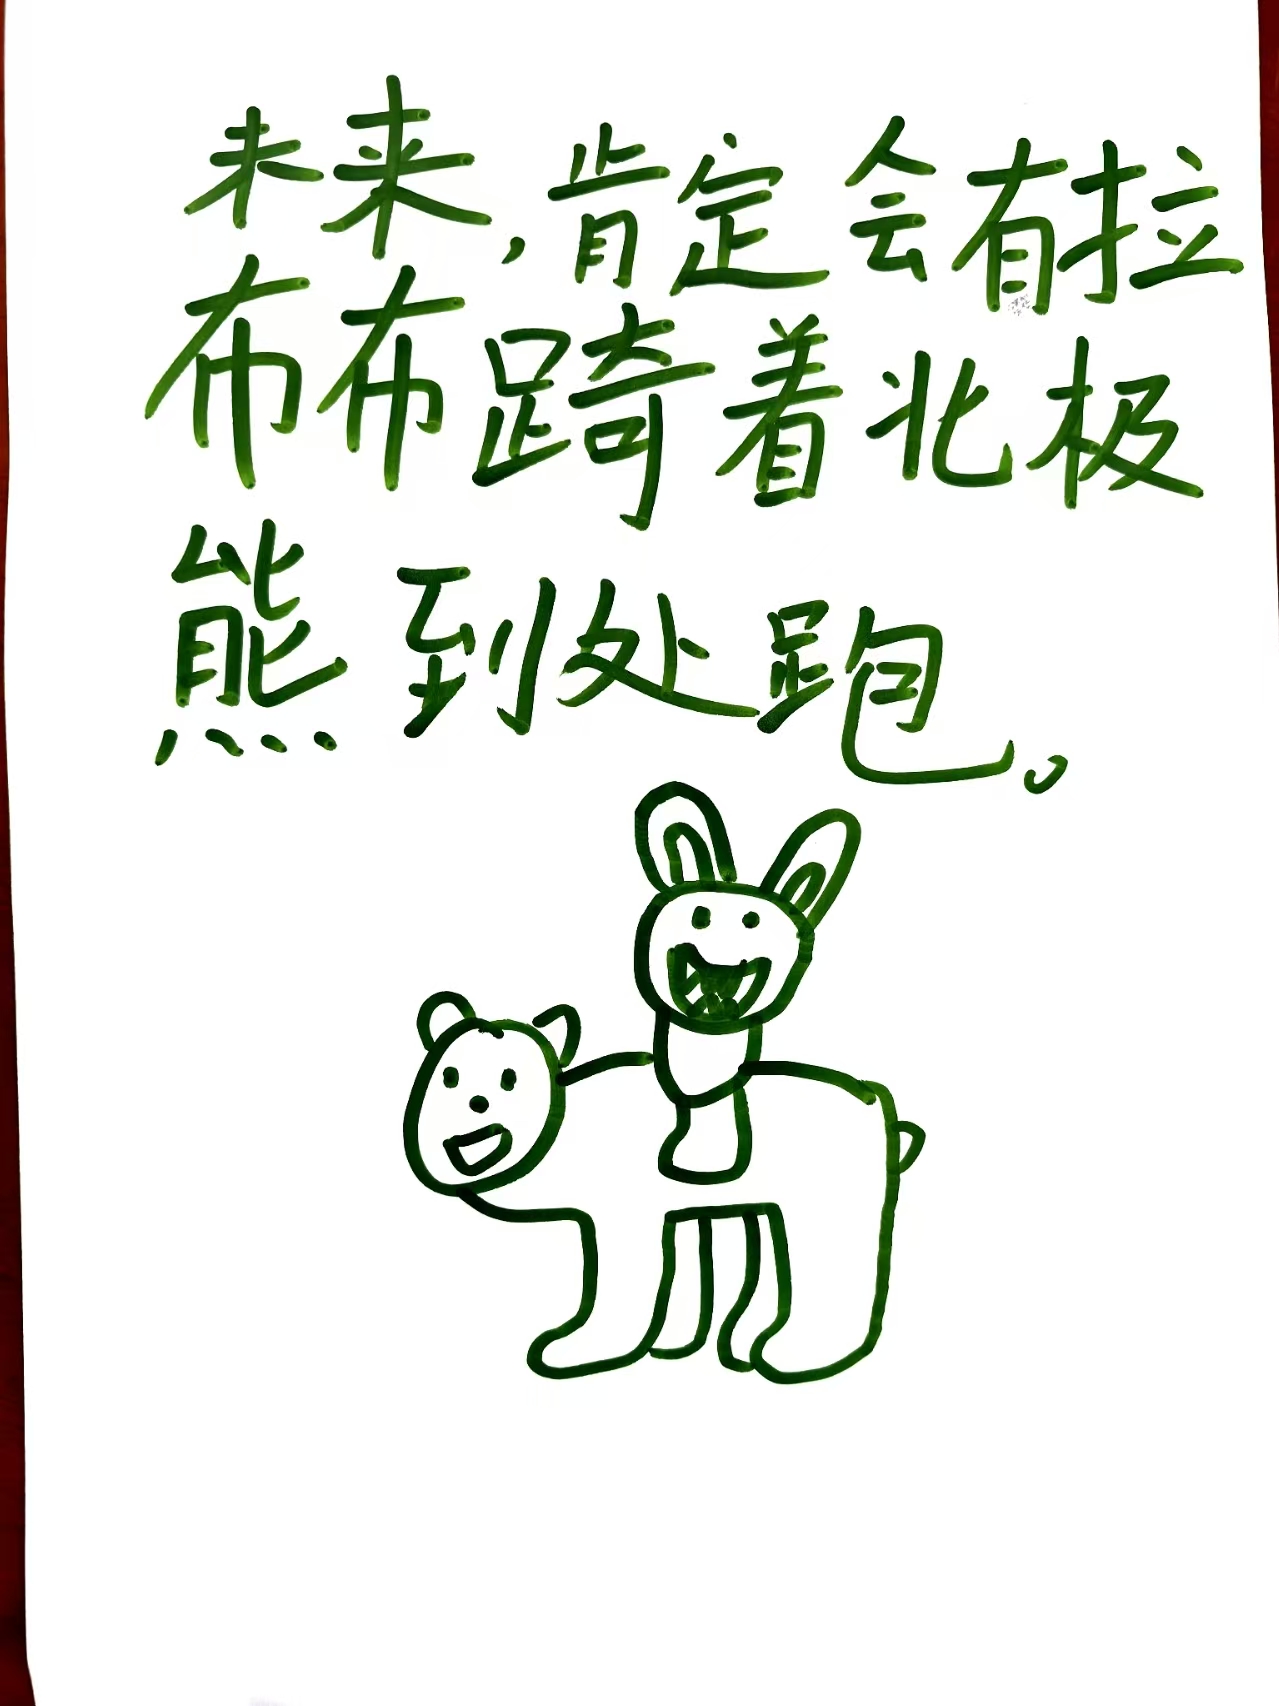 未来,肯定会有拉
布布踦着北极
熊到处跑。